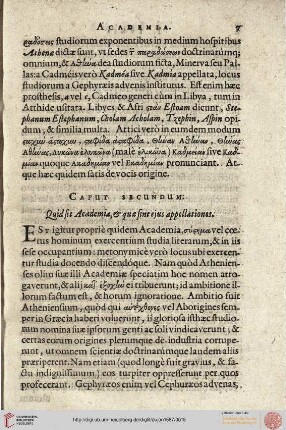 ACADEMIA.
studiorum exponentibus in medium hospitibus
Athena dictæ sunt, vt sedes doctrinarumq;
omnium, & dea studiorum ficta, Minerva seu Pal-
las: a Cadmeis verò Kadméa sive Kadmia appellata, locus
studiorum a Gephyræis advenis institutus. Est enim hæc
prosthesis, a vel Cadmeo generi cum in Libya, tum in
Atthide usitata. Libyes & Afri Estoam dicunt, Ste-
phanum Estephanum, Scolam Ascholam, Tzephin, Aspin opi-
dum, & similia multa. Attici verò in eumdem modum
(male Kadmian sive Kad-
quoque vel pronunciant. At-
que hæc quidem satis de vocis origine.
CAPUT SECUNDUM.
Quid sit Academia, & quæ sint ejus appellationes.
EST igitur propriè quidem Academia, vel cœ-
tus hominum exercentium studia literarum, & in iis
sese occupantium: metonymicè verò locus ubi exercen-
tur studia docendo discendóque. Nam quòd Athenien-
ses olim suæ illi Academiæ speciatim hoc nomen arro-
gaverunt, & alij ei tribuerunt; id ambitione il-
lorum factum est, & horum ignoratione. Ambitio fuit
Atheniensium, quòd qui vel Aborigines sem-
per in Græcia haberi voluerunt, ij gloriosa isthæc studio-
rum nomina suæ ipsorum genti ac soli vindicaverunt; &
certas eorum origines plerumque de industria corrupe-
runt, ut omnem scientiæ doctrinarúmque laudem aliis
præriperent. Nam etiam (quod longè fuit gravius, & fa-
ctu indignissimum) eos turpiter oppresserunt per quos
profecerant. Gephyræos enim vel Cephuræos advenas,